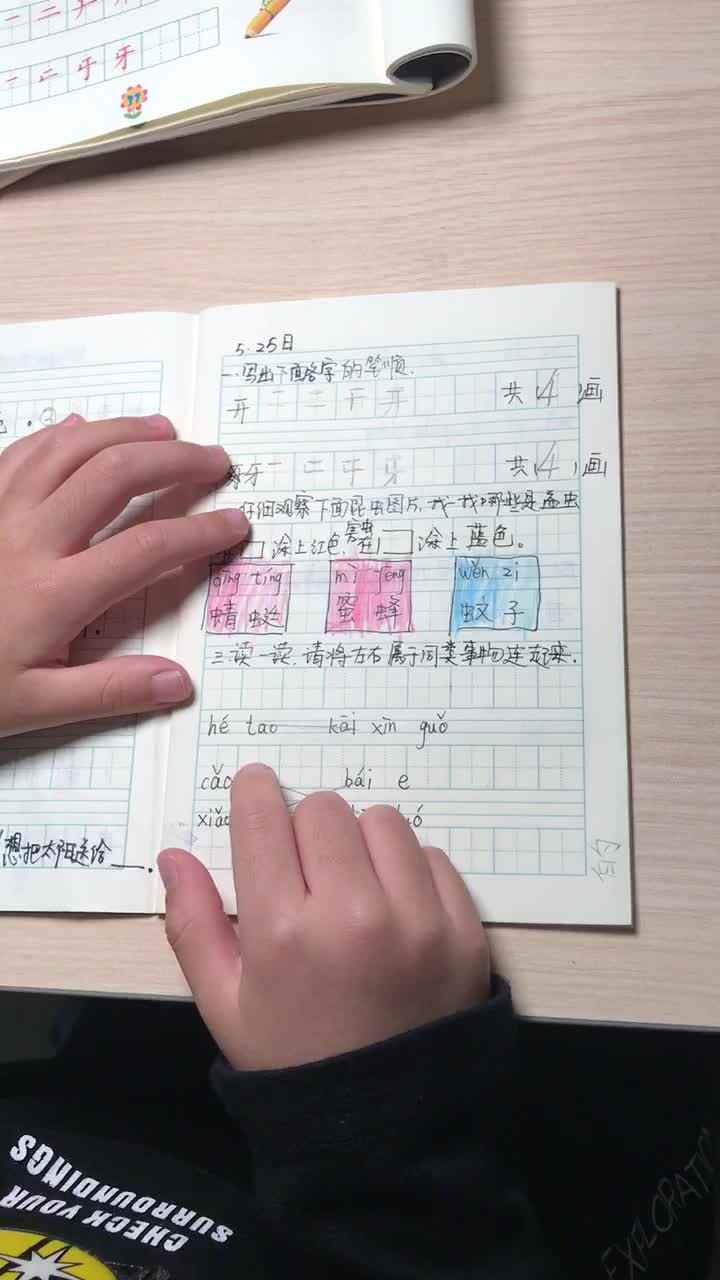 一 二
一 二 于 牙
77
5.25日
一.写出下面各字的笔顺.
开 一 二 于 开 共(4)画
牙 一 二 于 牙 共(4)画
仔细观察下面昆虫图片,找一找哪些是益虫
涂上红色,害虫在□涂上蓝色。
qīng tíng mì fēng wén zi
蜻蜓 蜜蜂 蚊子
三.读一读,请将左右属于同类事物连起来.
hé tao kāi xīn guǒ
cǎo bái e
xiǎo
想把太阳送给___.
CHECK YOUR
SURROUNDINGS